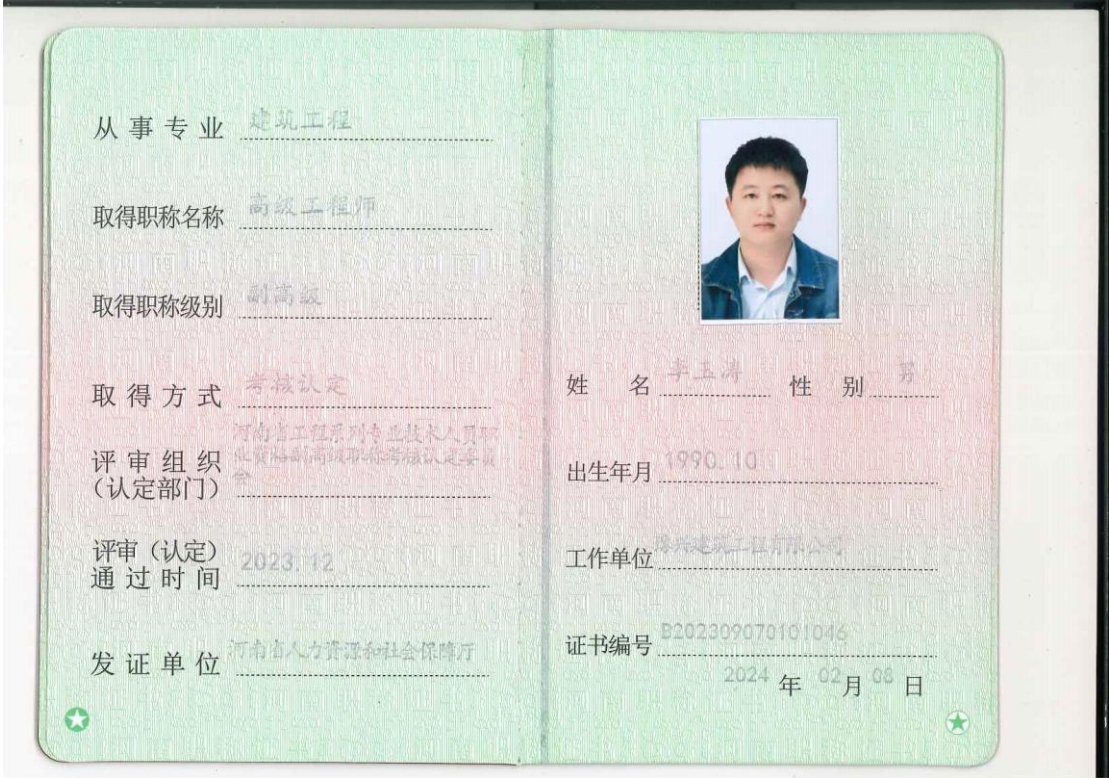 从事专业 建筑工程
取得职称名称 高级工程师
取得职称级别 副高级
取得方式 考核认定
评审组织
(认定部门)
河南省工程系列专业技术人员职
业资格副高级职称考核认定委员
会
评审(认定)
通过时间 2023.12
发证单位 河南省人力资源和社会保障厅
姓名 李玉涛 性别 男
出生年月 1990.10
工作单位 豫兴建筑工程有限公司
证书编号 B202309070101046
2024年02月08日